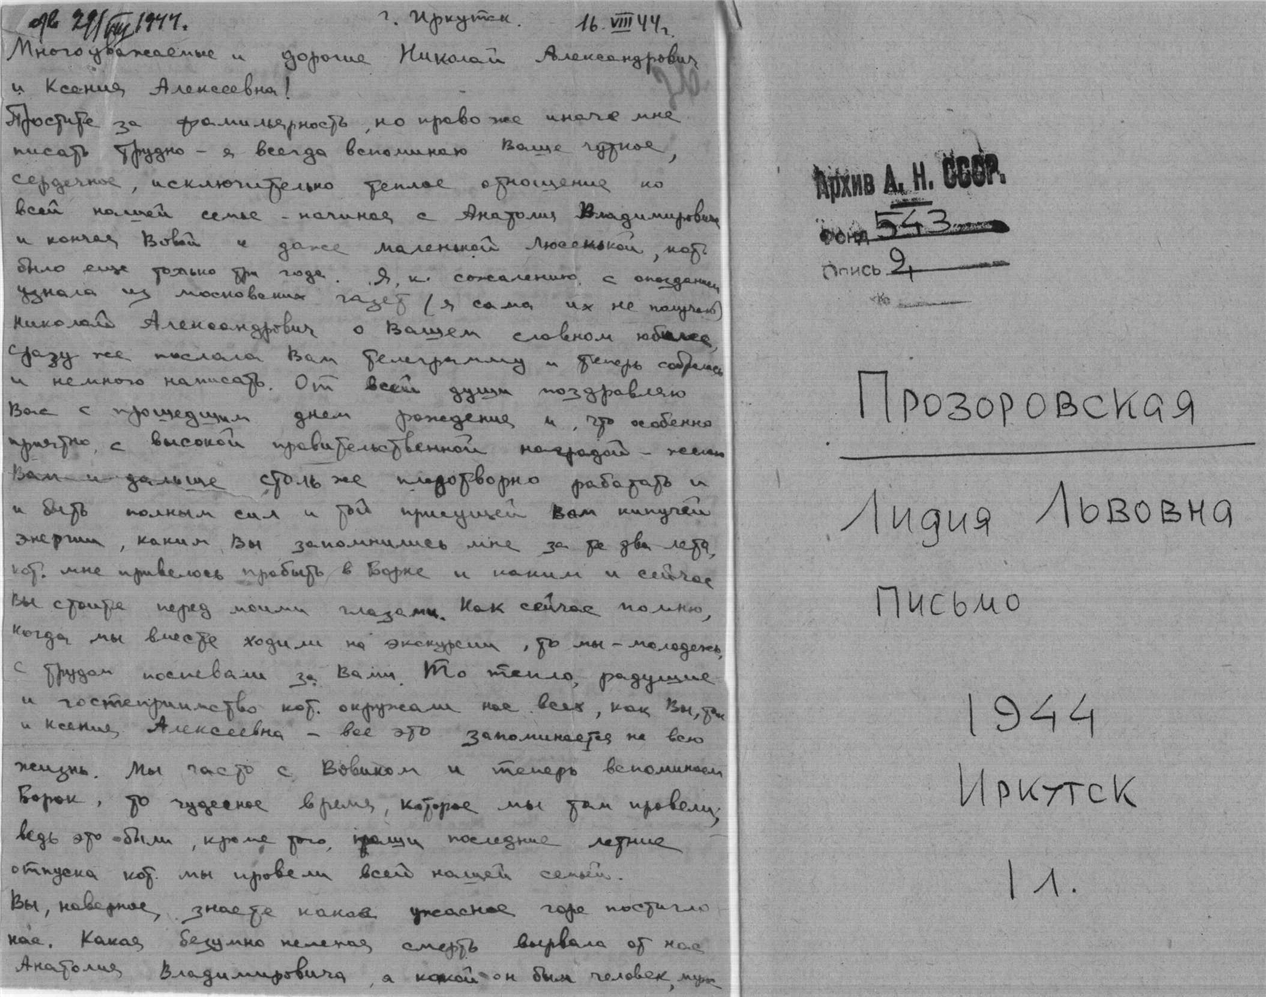 отв 29/VIII 1944.
г. Иркутск. 16 VIII 44 г.
Многоуважаемые и дорогие Николай Александрович
и Ксения Алексеевна!
Простите за фамильярность, но право же иначе мне
писать трудно - я всегда вспоминаю Ваше чуткое,
сердечное, исключительно теплое отношение ко
всей нашей семье - начиная с Анатолия Владимировича
и кончая Вовой и даже маленькой Люсенькой, кот.
было еще только три года. Я, к сожалению, с опозданием
узнала из московских газет (я сама их не получаю)
Николай Александрович о Вашем славном юбилее,
сразу же послала Вам телеграмму и теперь собралась
и немного написать. От всей души поздравляю
Вас с прошедшим днем рождения и, что особенно
приятно, с высокой правительственной наградой - желаю
Вам и дальше столь же плодотворно работать и
и быть полным сил и той присущей Вам кипучей
энергии, каким Вы запомнились мне за те два лета,
кот. мне привелось пробыть в Борке и каким и сейчас
Вы стоите перед моими глазами. Как сейчас помню,
когда мы вместе ходили на экскурсии, то мы - молодежь,
с трудом поспевали за Вами. То тепло, радушие
и гостеприимство кот. окружали нас всех, как Вы, так
и Ксения Алексеевна - все это запоминается на всю
жизнь. Мы часто с Вовиком и теперь вспоминаем
Борок, то чудесное время, которое мы там провели,
ведь это были, кроме того, наши последние летние
отпуска кот. мы провели всей нашей семьей.
Вы, наверное, знаете какое ужасное горе постигло
нас. Какая безумно нелепая смерть вырвала от нас
Анатолия Владимировича, а какой он был человек, муж
Архив А. Н. СССР.
Фонд 543
Опись 2
№
Прозоровская
Лидия Львовна
Письмо
1944
Иркутск
1 л.